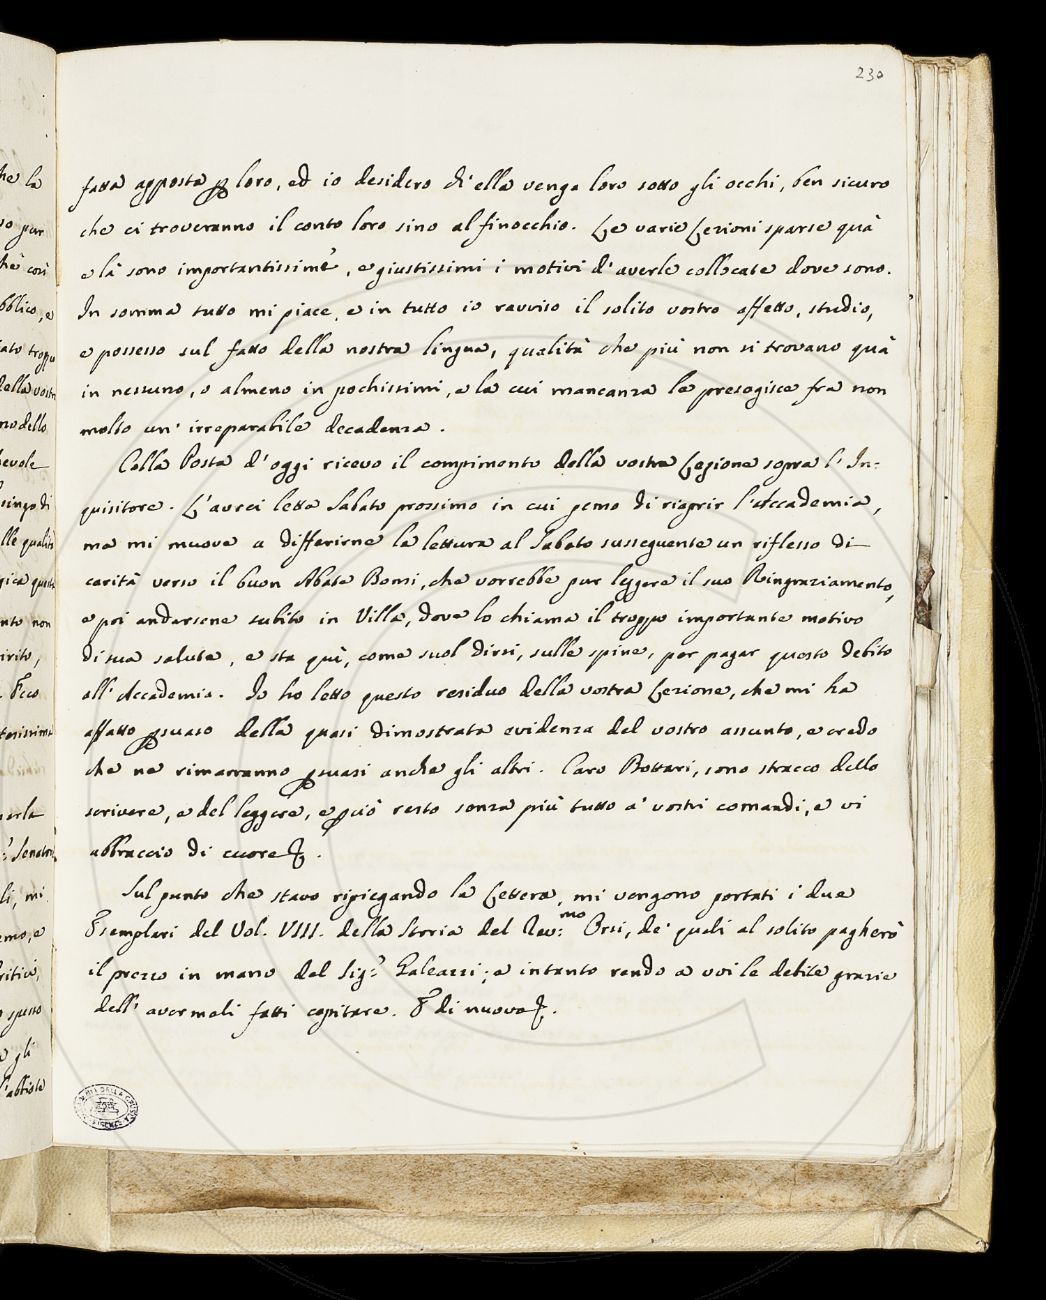 230
fatta apposta p loro, ed io desidero ch'ella venga loro sotto gli occhi, ben sicuro
che ci troveranno il conto loro sino al finocchio. Le varie Lezioni sparse quà
e là sono importantissime, e giustissimi i motivi d'averle collocate dove sono.
In somma tutto mi piace, e in tutto io ravviso il solito vostro affetto, studio,
e possesso sul fatto della nostra lingua, qualità che più non si trovano quà
in nessuno, o almeno in pochissimi, e la cui mancanza le presagisce fra non
molto un' irreparabile decadenza.
Colla Posta d'oggi ricevo il compimento della vostra Lezione sopra l'In=
quisitore. L'avrei letta Sabato prossimo in cui penso di riaprir l'Accademia,
ma mi muove a differirne la lettura al Sabato susseguente un riflesso di
carità verso il buon Abate Bonsi, che vorrebbe pur leggere il suo Ringraziamento,
e poi andarsene subito in Villa, dove lo chiama il troppo importante motivo
di sua salute, e sta quì, come suol dirsi, sulle spine, per pagar questo debito
all'Accademia. Io ho letto questo residuo della vostra Lezione, che mi ha
affatto psuaso della quasi dimostrata evidenza del vostro assunto, e credo
che ne rimarranno psuasi anche gli altri. Caro Bottari, sono stracco dello
scrivere, e del leggere, e pciò resto senza più tutto a' vostri comandi, e vi
abbraccio di cuore &.
Sul punto che stavo ripiegando la Lettera, mi vengono portati i due
Esemplari del Vol. VIII. della Storia del Rev.mo Orsi, de' quali al solito pagherò
il prezzo in mano del Sig.r Galeazzi; e intanto rendo a voi le debite grazie
dell' avermeli fatti capitare. E di nuovo &.